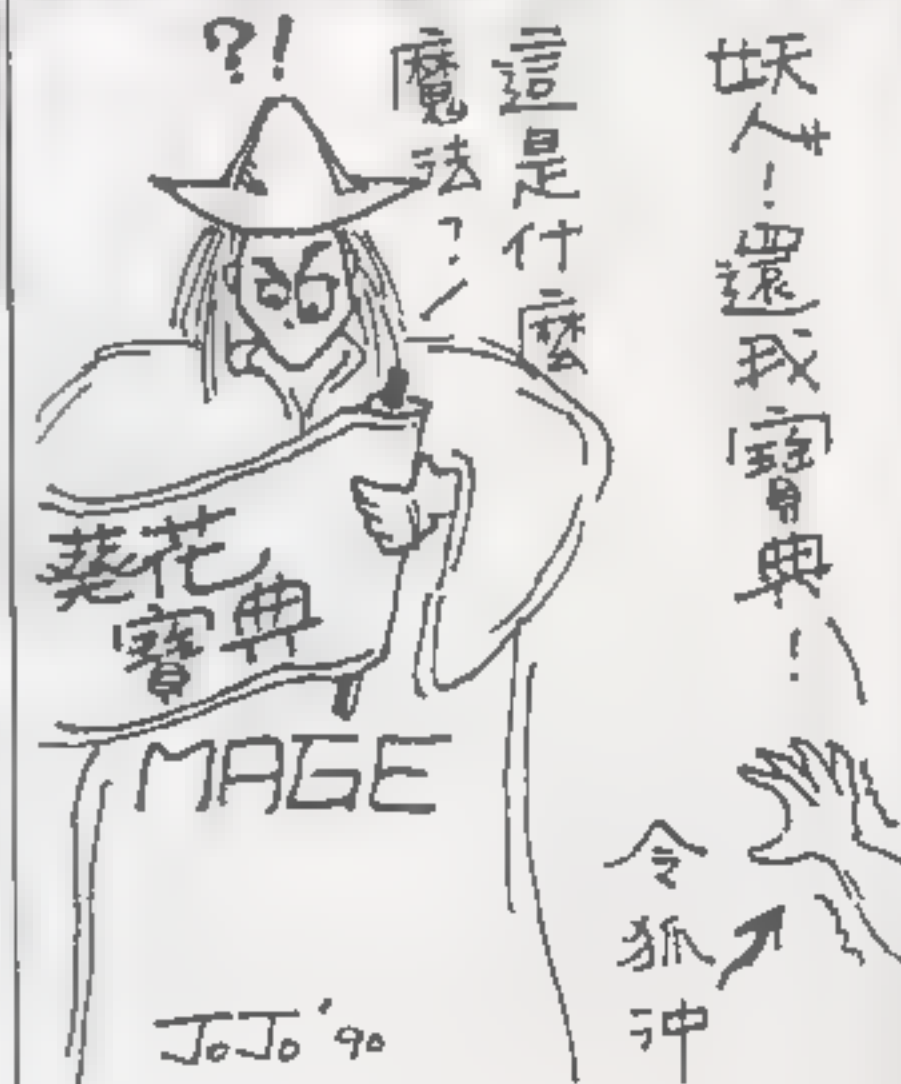 妖人！還我寶典！
這是什麼
魔法？
?!
葵花
寶典
MAGE
令狐沖
JoJo '90